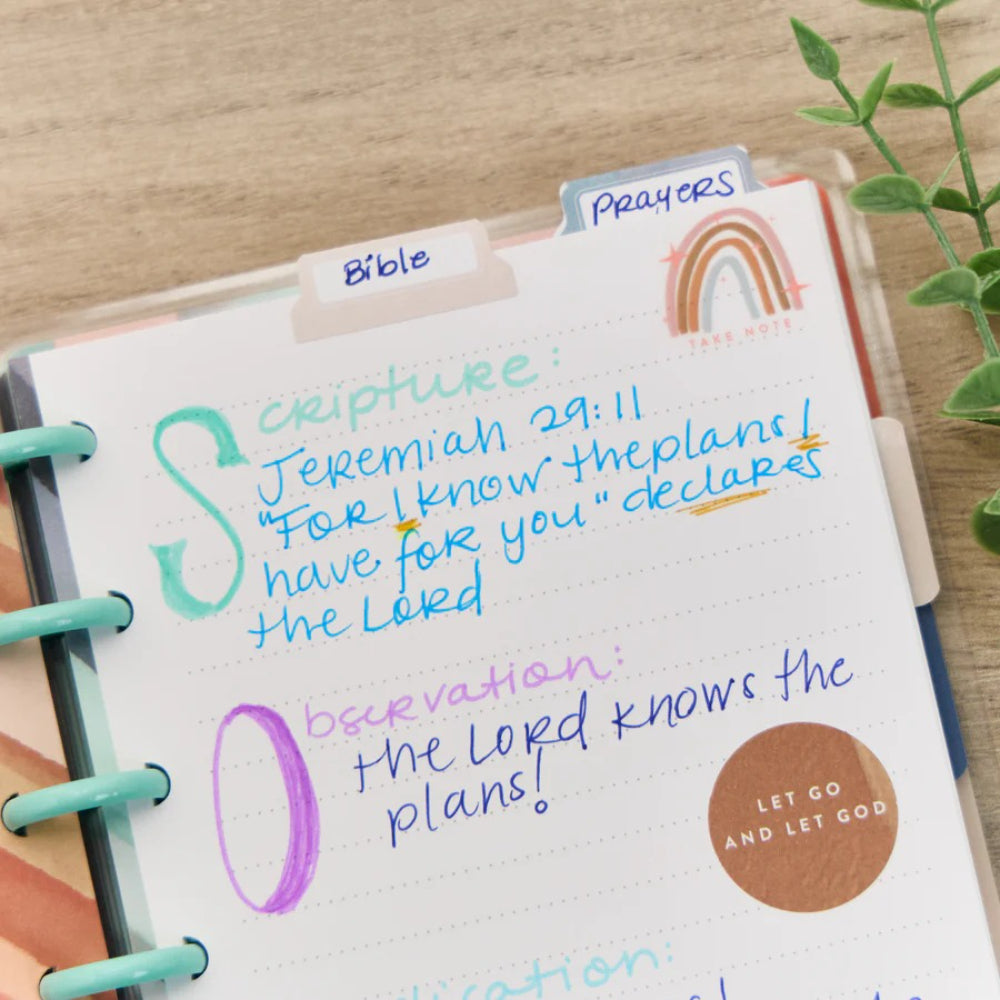 Prayers
Bible
TAKE NOTE
Scripture:
Jeremiah 29:11
"For I know the plans I
have for you" declares
the Lord
Obscrvation:
the Lord knows the
plans!
LET GO
AND LET GOD